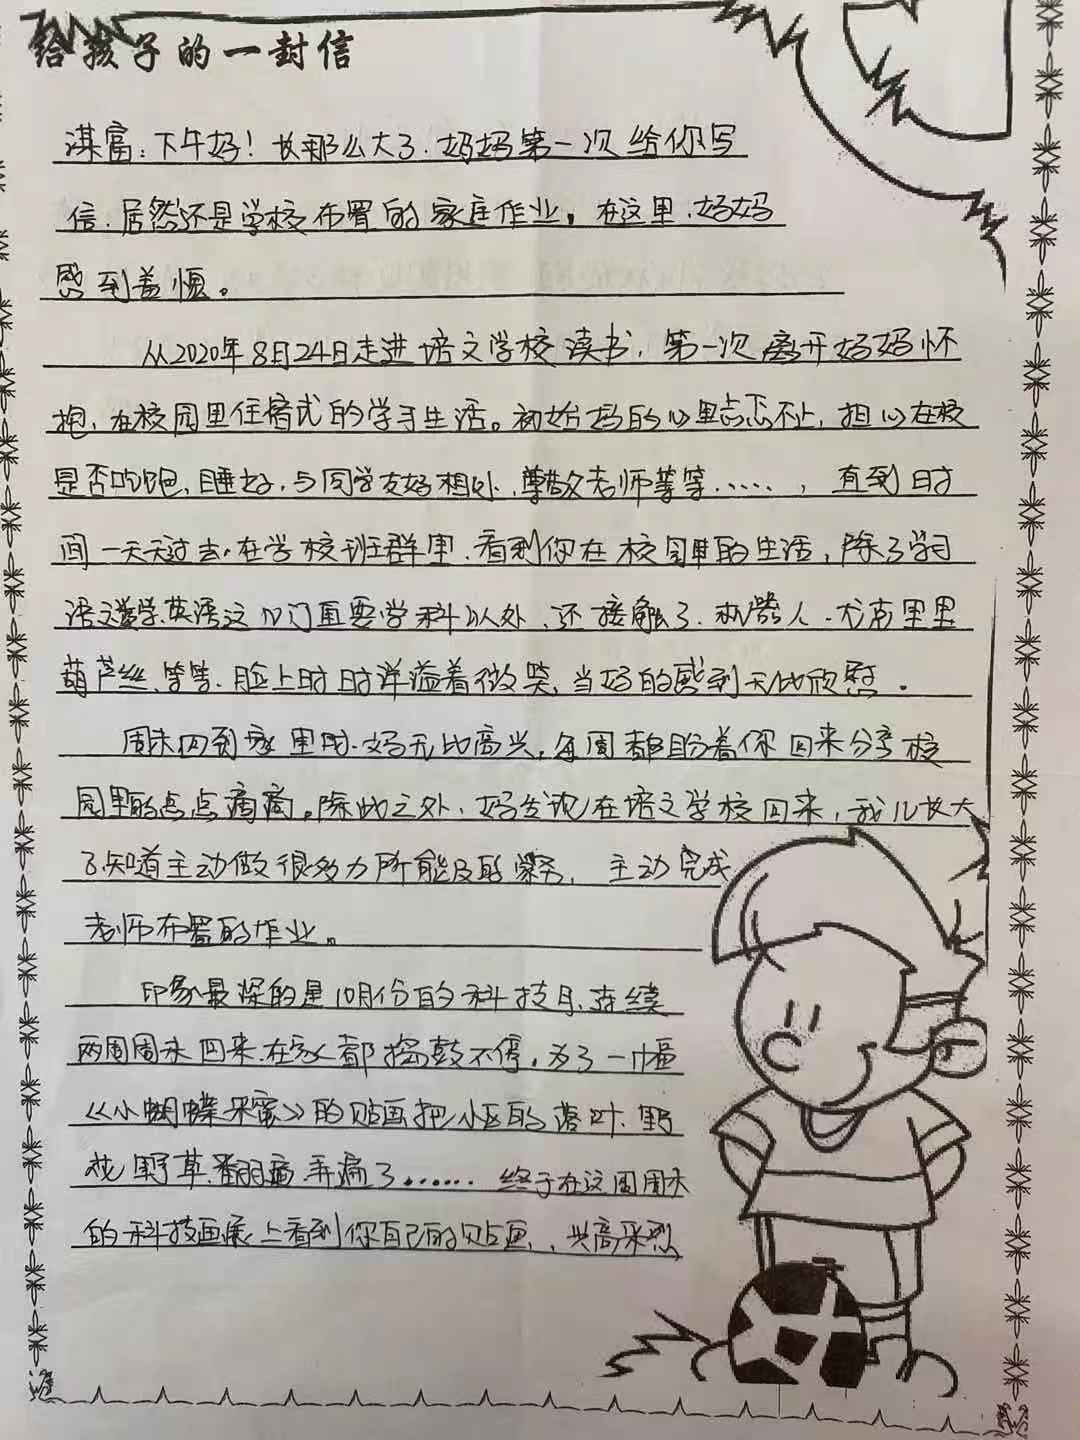 给孩子的一封信
淇富:下午好!长那么大了.妈妈第一次给你写
信.居然还是学校布置的家庭作业。在这里.妈妈
感到羞愧。
从2020年8月24日走进培文学校读书,第一次离开妈妈怀
抱,在校园里住宿式的学习生活。初始妈的心里忐忑不上,担心在校
是否吃饱、睡好,与同学友好相处、尊敬老师等等……,直到时
间一天天过去,在学校班群里.看到你在校园里的生活,除了学习
语文数学英语这几门重要学科以外、还接触了.机器人.尤克里里
葫芦丝、等等.脸上时时洋溢着微笑,当妈的感到无比欣慰.
周末回到家里时.妈无比高兴,每周都盼着你回来分享校
园里的点点滴滴。除此之外.妈发现在培文学校回来,我儿长大
了.知道主动做很多力所能及的家务, 主动完成
老师布置的作业。
印象最深的是10月份的科技月.连续
两周周末回来.在家都捣鼓不停,为了一幅
《小蝴蝶采蜜》的贴画把小区的落叶.野
花野草翻遍弄遍了…… 终于在这周周末
的科技画展上看到你自己的贴画,,兴高采烈